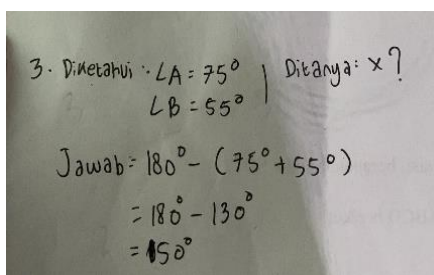 3. Diketahui : ∠A = 75° | Ditanya: x?
∠B = 55°
Jawab = 180° - (75° + 55°)
= 180° - 130°
= 150°